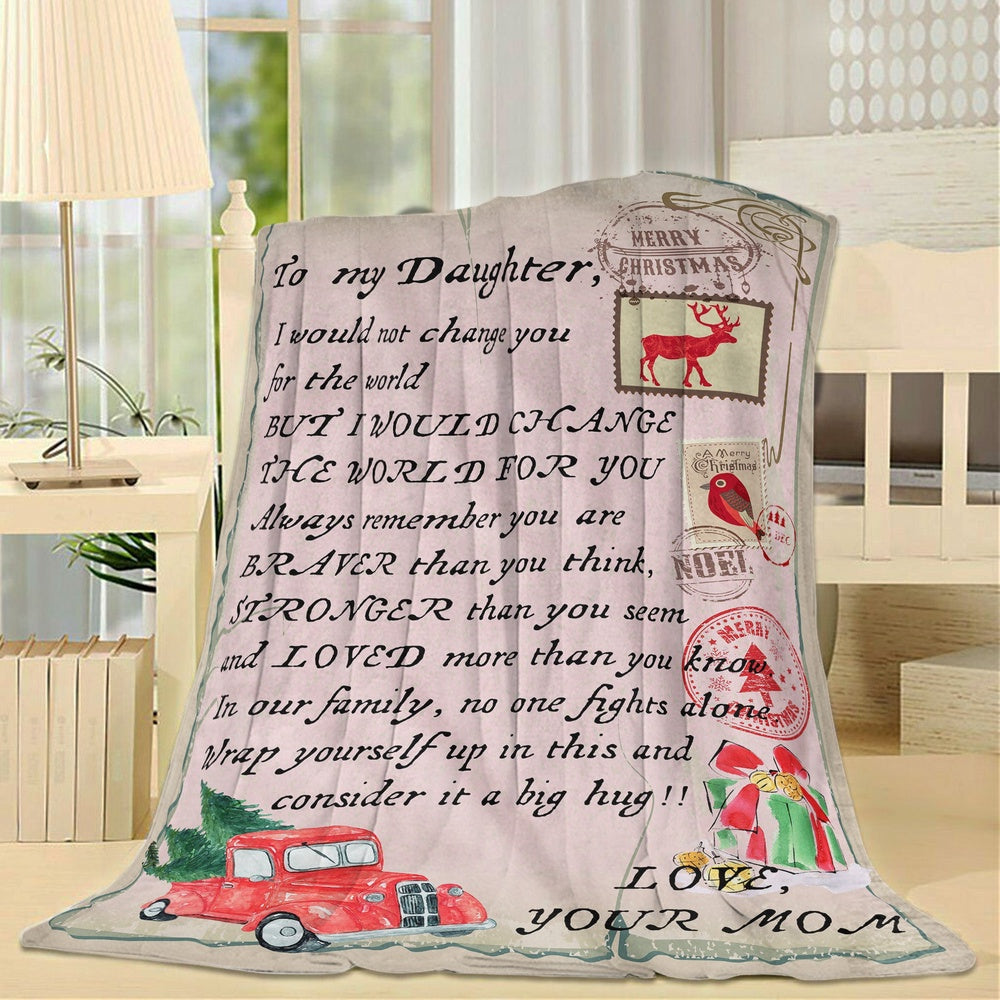 To my Daughter,
I would not change you
for the world
BUT I WOULD CHANGE
THE WORLD FOR YOU
Always remember you are
BRAVER than you think,
STRONGER than you seem
and LOVED more than you know
In our family, no one fights alone
Wrap yourself up in this and
consider it a big hug!!
LOVE,
YOUR MOM
MERRY
CHRISTMAS
A Merry
Christmas
DEC
NOEL
MERRY
CHRISTMAS